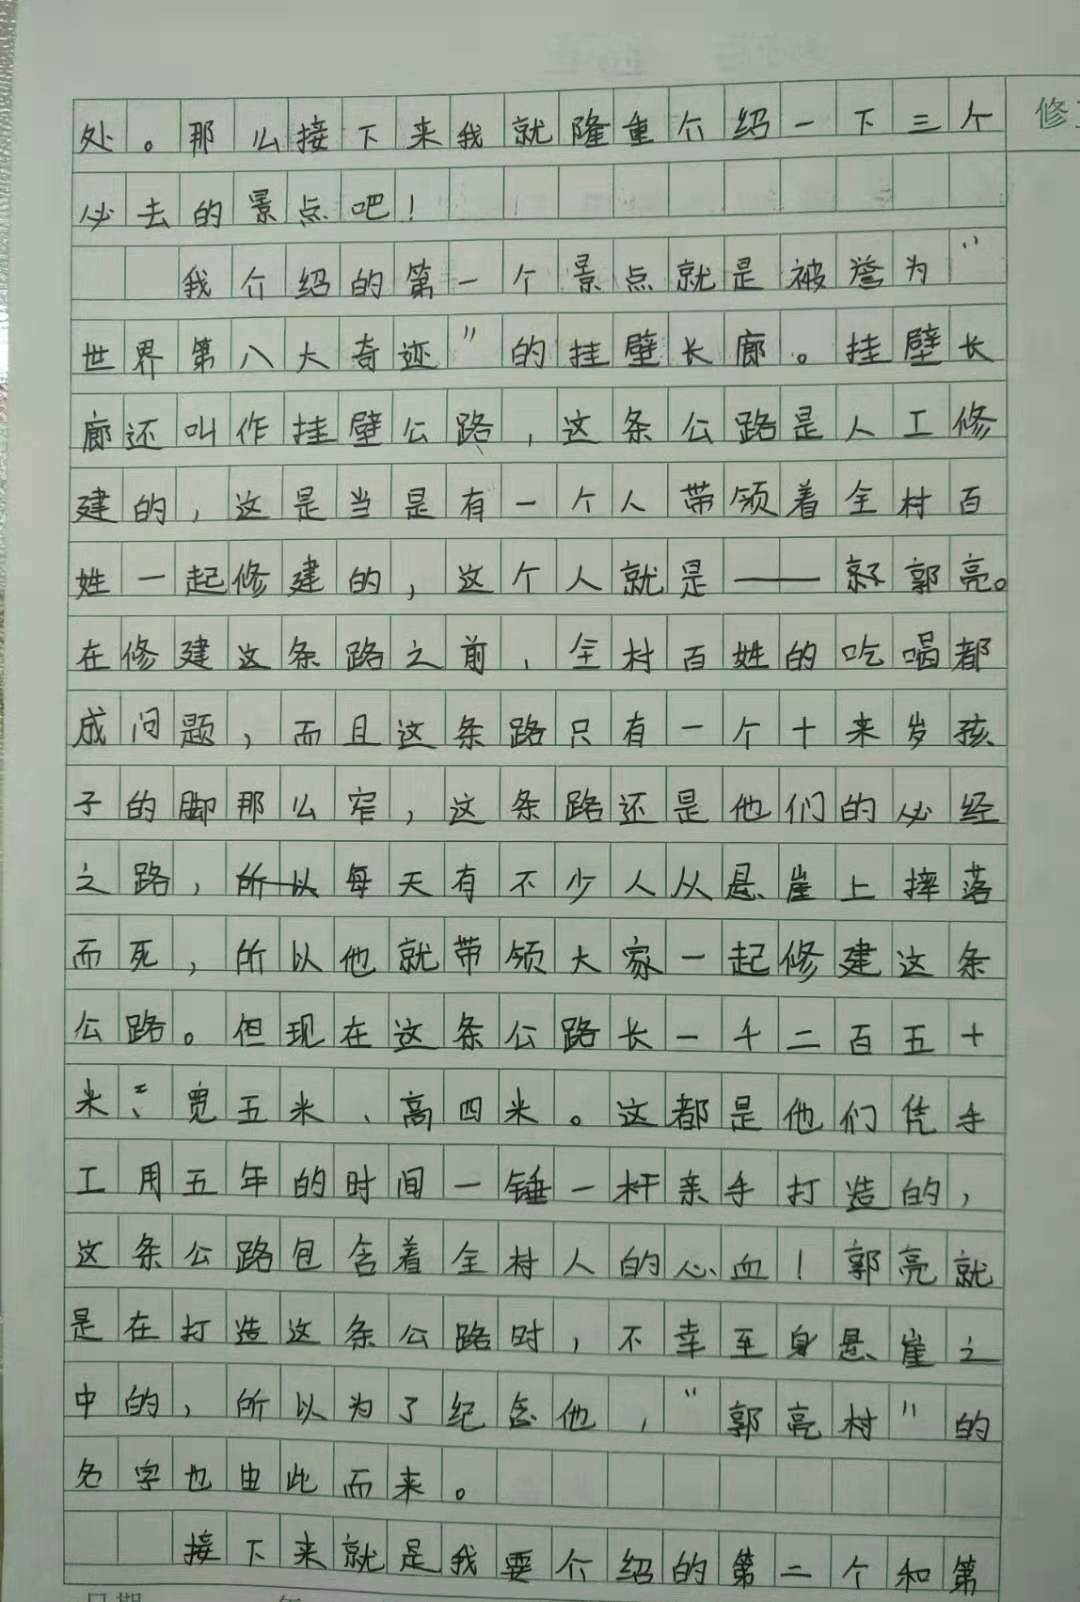 处。那么接下来我就隆重介绍一下三个
必去的景点吧！
我介绍的第一个景点就是被誉为“
世界第八大奇迹”的挂壁长廊。挂壁长
廊还叫作挂壁公路，这条公路是人工修
建的，这是当是有一个人带领着全村百
姓一起修建的，这个人就是——郭亮。
在修建这条路之前，全村百姓的吃喝都
成问题，而且这条路只有一个十来岁孩
子的脚那么窄，这条路还是他们的必经
之路，所以每天有不少人从悬崖上摔落
而死，所以他就带领大家一起修建这条
公路。但现在这条公路长一千二百五十
米、宽五米、高四米。这都是他们凭手
工用五年的时间一锤一杆亲手打造的，
这条公路包含着全村人的心血！郭亮就
是在打造这条公路时，不幸至身悬崖之
中的，所以为了纪念他，“郭亮村”的
名字也由此而来。
接下来就是我要介绍的第二个和第